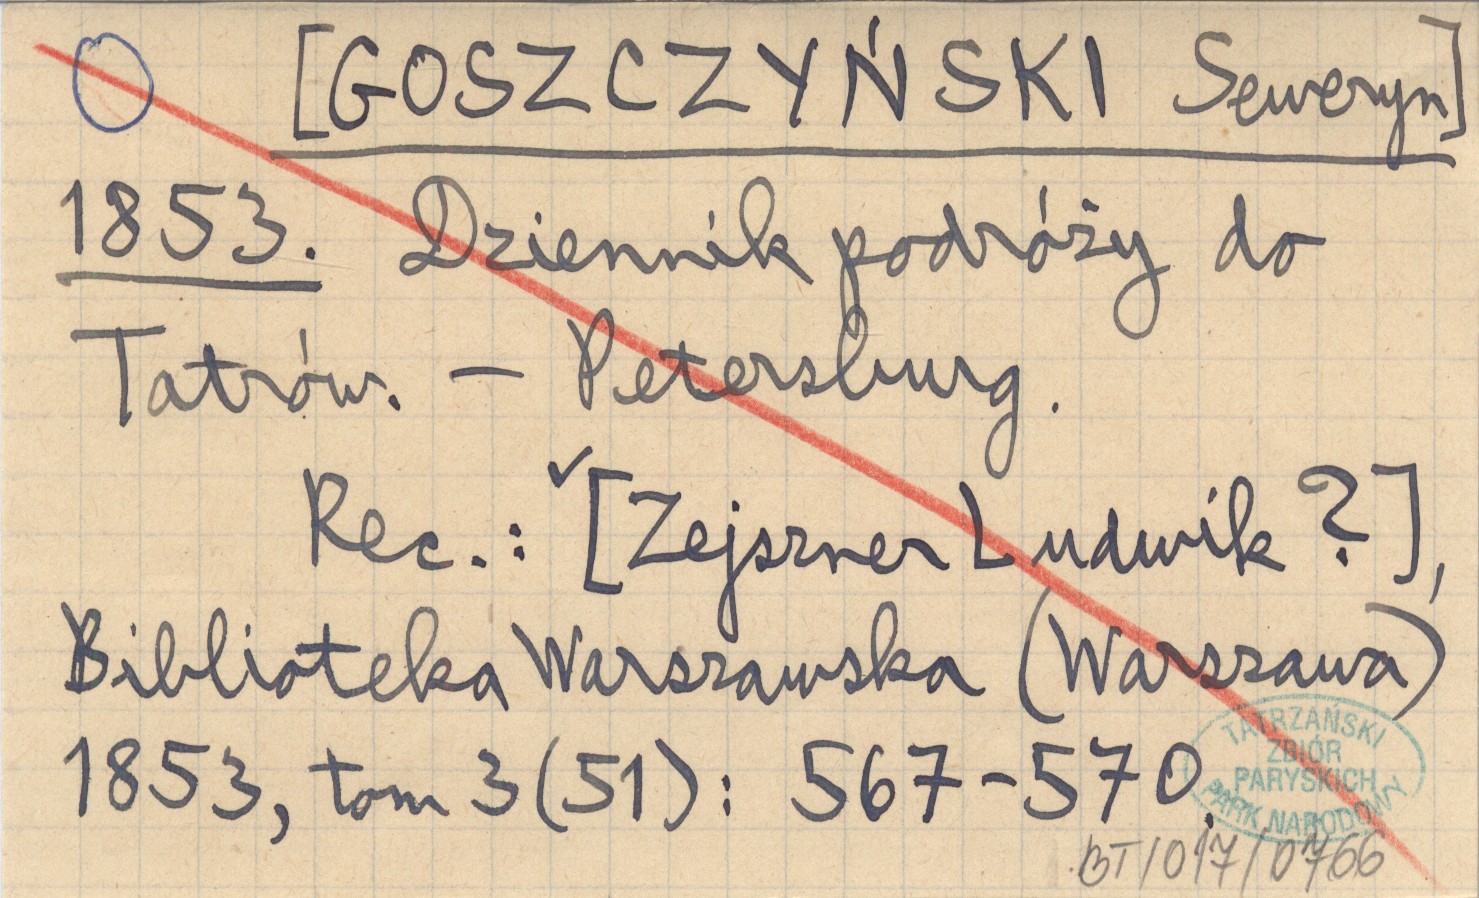 [GOSZCZYŃSKI Seweryn]
1853. Dziennik podróży do
Tatrów. — Petersburg.
Rec.: ✓[Zejszner Ludwik ?],
Biblioteka Warszawska (Warszawa)
1853, tom 3(51): 567-570.
TATRZAŃSKI
ZBIÓR
PARYSKICH
PARK NARODOWY
BT/017/0766